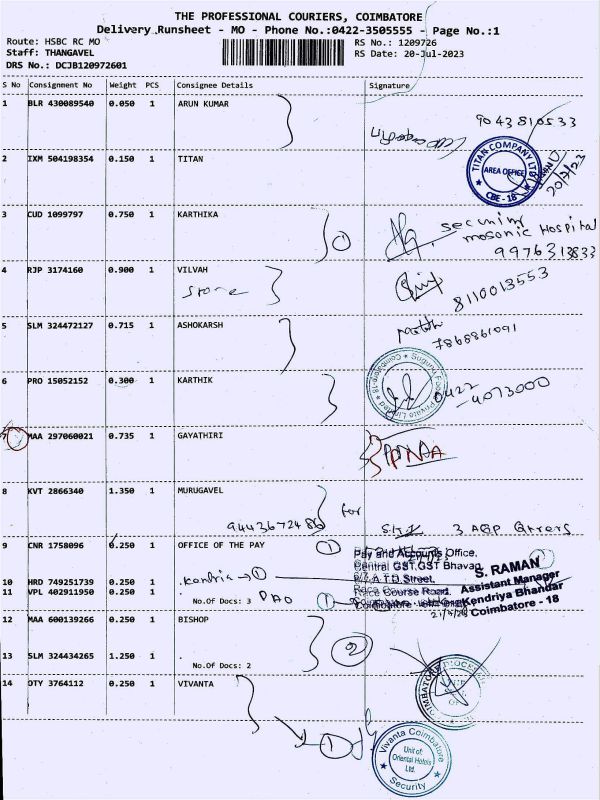 THE PROFESSIONAL COURIERS, COIMBATORE
Delivery Runsheet - MO - Phone No.:0422-3505555 - Page No.:1
Route: HSBC RC MO RS No.: 1209726
Staff: THANGAVEL RS Date: 20-Jul-2023
DRS No.: DCJB120972601
S No Consignment No Weight PCS Consignee Details Signature
1 BLR 430089540 0.050 1 ARUN KUMAR
9043810533
2 IXM 504198354 0.150 1 TITAN
TITAN COMPANY LTD
AREA OFFICE
CBE - 18
20/7/23
3 CUD 1099797 0.750 1 KARTHIKA
1 security
masonic Hospital
9976313833
4 RJP 3174160 0.900 1 VILVAH
Store
8110013553
5 SLM 324472127 0.715 1 ASHOKARSH
7868861091
6 PRO 15052152 0.300 1 KARTHIK
Private Limited
Coimbatore-18
0422
-4073000
7 MAA 297060021 0.735 1 GAYATHIRI
8 KVT 2866340 1.350 1 MURUGAVEL
9443672486 for
9 CNR 1758096 0.250 1 OFFICE OF THE PAY 1
Pay and Accounts Office,
Central GST,GST Bhavan
A.T.D.Street,
Race Course Road,
10 HRD 749251739 0.250 1 Kendria → 1
11 VPL 402911950 0.250 1
No.Of Docs: 3 PAO 1
S. RAMAN
Assistant Manager
Kendriya Bhandar
Coimbatore - 18
12 MAA 600139266 0.250 1 BISHOP
2
13 SLM 324434265 1.250 1
No.Of Docs: 2
COIMBATORE
14 OTY 3764112 0.250 1 VIVANTA
1
Vivanta Coimbatore
Unit of:
Oriental Hotels
Ltd.
Security